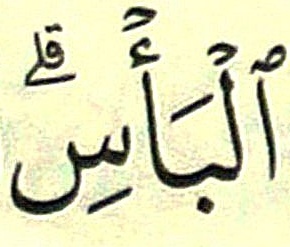 ٱلْبَأْسِ ۗ